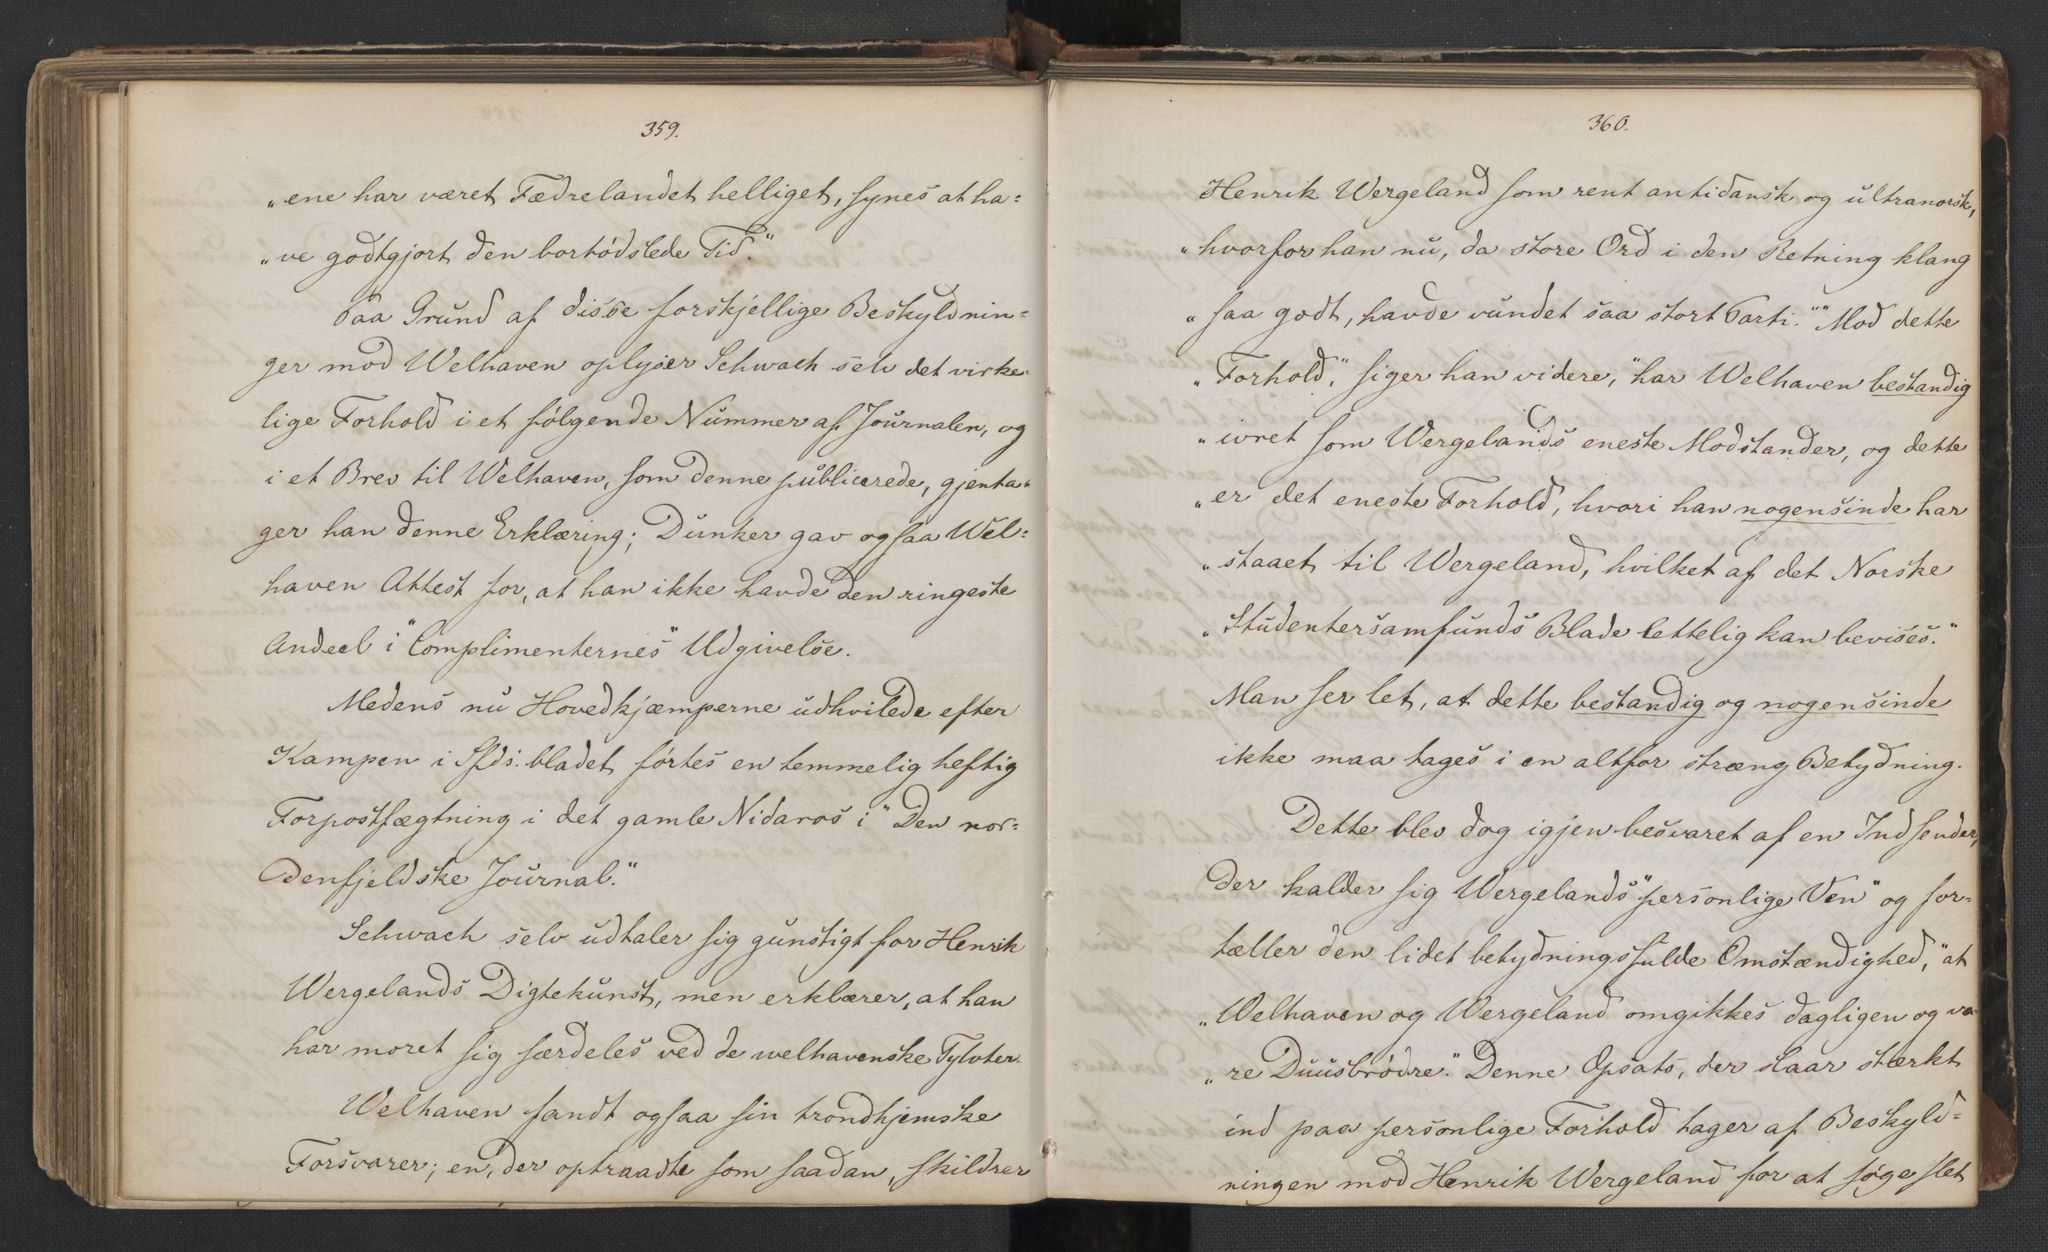 359.
„ene har været Fædrelandet helliget, synes at ha-
„ve godtgjort den bortødslede Tid.“
Paa Grund af disse forskjellige Beskyldnin-
ger mod Welhaven oplyser Schwach selv det virke-
lige Forhold i et følgende Nummer af Journalen, og
i et Brev til Welhaven, som denne publicerede, gjenta-
ger han denne Erklæring; Dunker gav ogsaa Wel-
haven Attest for, at han ikke havde den ringeste
Andeel i “Complimenternes” Udgivelse.
Medens nu Hovedkjæmperne udhvilede efter
Kampen i Sfds: bladet, førtes en temmelig heftig
Forpostfægtning i det gamle Nidaros i “Den nor-
denfjeldske Journal.”
Schwach selv udtaler sig gunstigt for Henrik
Wergelands Digtekunst, men erklærer, at han
har moret sig særdeles ved de welhavenske Tylvter.
Welhaven fandt ogsaa sin trondhjemske
Forsvarer; en, der optraadte som saadan, skildrer
360.
Henrik Wergeland som rent antidansk og ultranorsk,
„hvorfor han nu, da store Ord i den Retning klang
„saa godt, havde vundet saa stort Parti.“ “Mod dette
„Forhold,“ siger han videre, “har Welhaven bestandig
„ivret som Wergelands eneste Modstander, og dette
„er det eneste Forhold, hvori han nogensinde har
„staaet til Wergeland, hvilket af det Norske
„Studentersamfunds Blade lettelig kan bevises.“
Man ser let, at dette bestandig og nogensinde
ikke maa tages i en altfor stræng Betydning.
Dette blev dog igjen besvaret af en Indsender,
der kalder sig Wergelands “personlige Ven” og for-
tæller den lidet betydningsfulde Omstændighed, “at
„Welhaven og Wergeland omgikkes dagligen og va-
„re Duusbrødre.“ Denne Opsats, der slaar stærkt
ind paa personlige Forhold tager af Beskyld-
ningen mod Henrik Wergeland for at søge slet